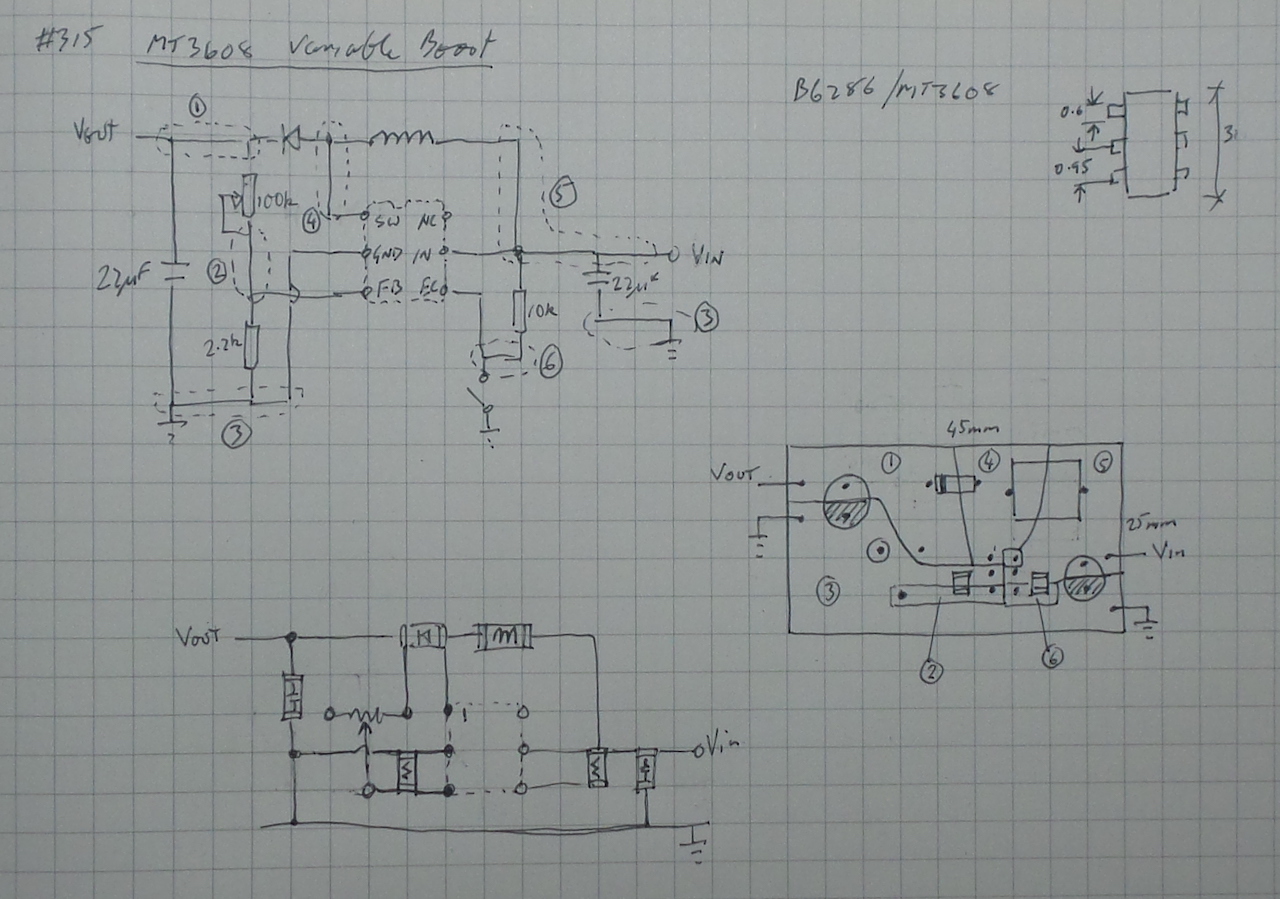 #315 MT3608 Variable Boost
B6286/MT3608
0.6
3
0.95
①
VOUT
100k
④
⑤
SW NC
GND IN
VIN
②
22µF
22µF
FB EN
10k
③
2.2k
⑥
③
45mm
VOUT
① ④ ⑤
25mm
Vin
③
② ⑥
VOUT
1
Vin